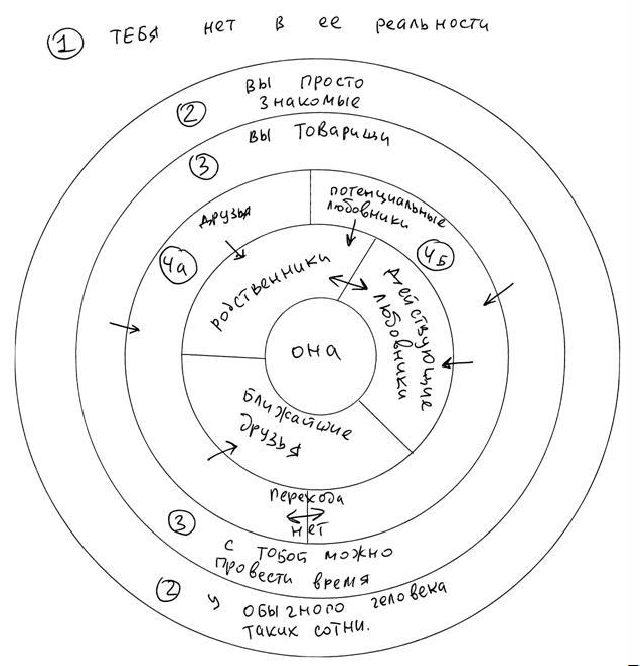 1 ТЕБЯ нет в ее реальности
вы просто
2 знакомые
вы товарищи
3
потенциальные
любовники
друзья
4а
4Б
родственники
действующие
любовники
она
ближайшие
друзья
перехода
нет
3
с тобой можно
провести время
2 у обычного человека
таких сотни.